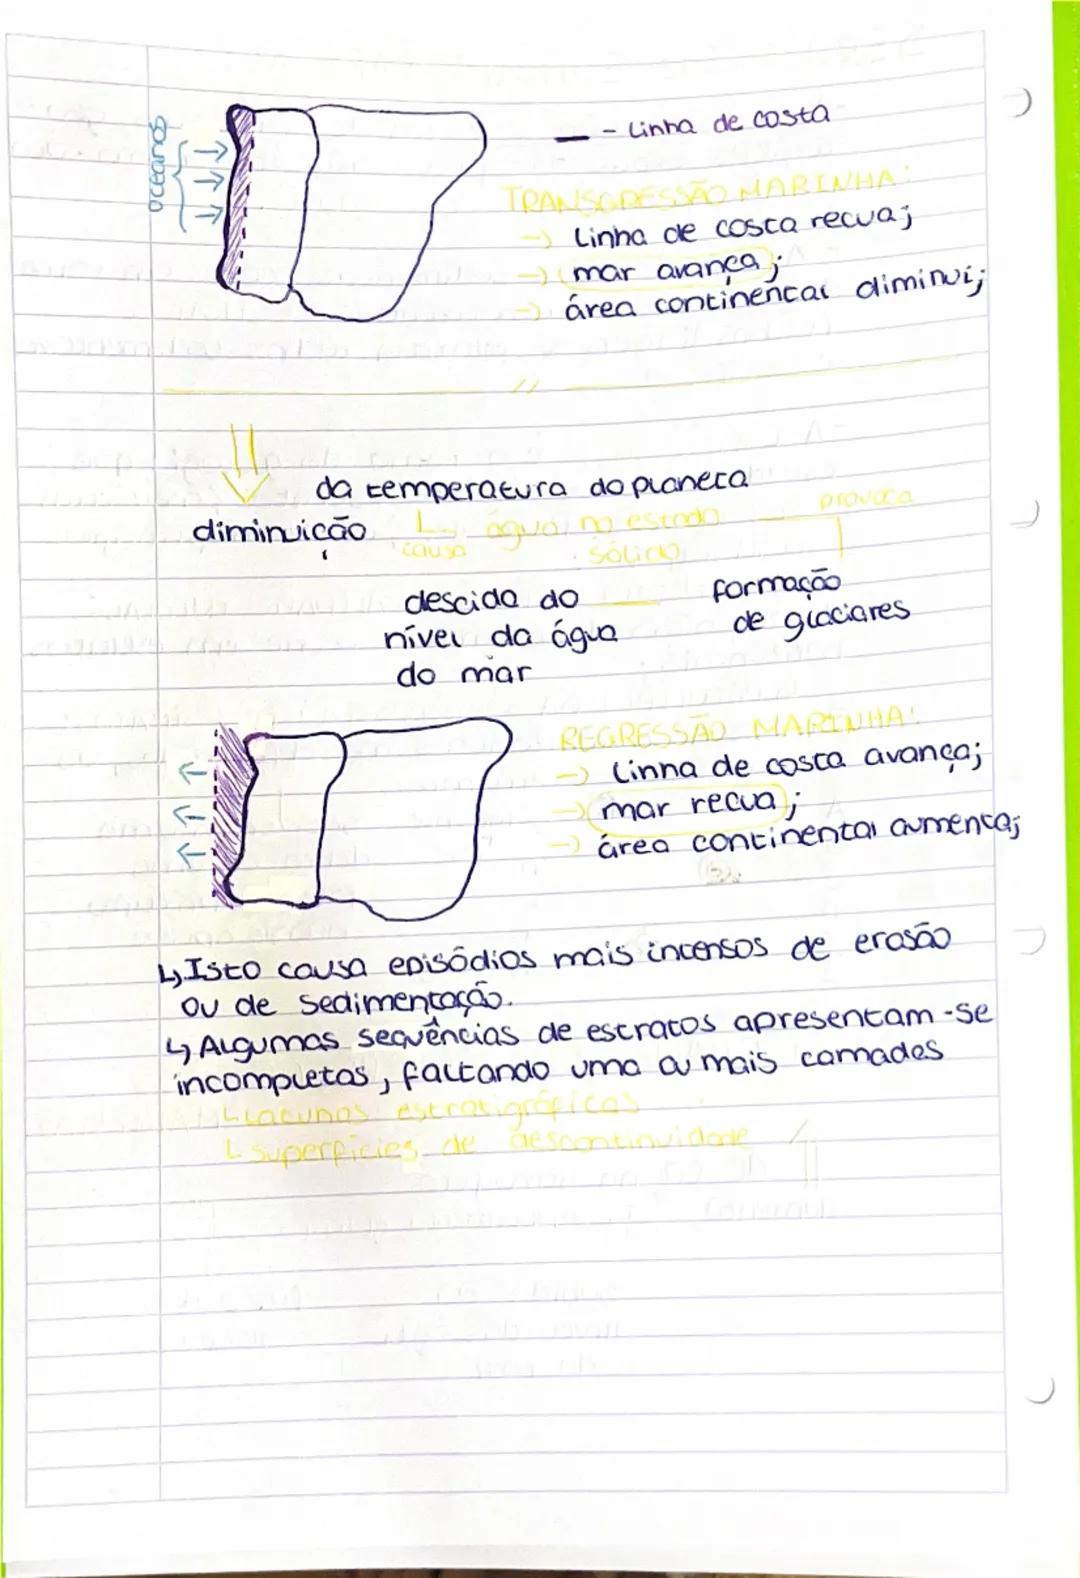 oceanos
- Linha de costa
TRANSGRESSÃO MARINHA:
→ Linha de costa recua;
→ mar avança;
→ área continental diminui;
//
da temperatura do planeta
diminuição
causa
água no estado
sólido
provoca
descida do
nível da água
do mar
formação
de glaciares
REGRESSÃO MARINHA:
→ Linha de costa avança;
→ mar recua;
→ área continental aumenta;
↳ Isto causa episódios mais intensos de erosão
ou de sedimentação.
↳ Algumas sequências de estratos apresentam-se
incompletas, faltando uma ou mais camadas
↳ Lacunas estratigráficas
↳ superfícies de descontinuidade